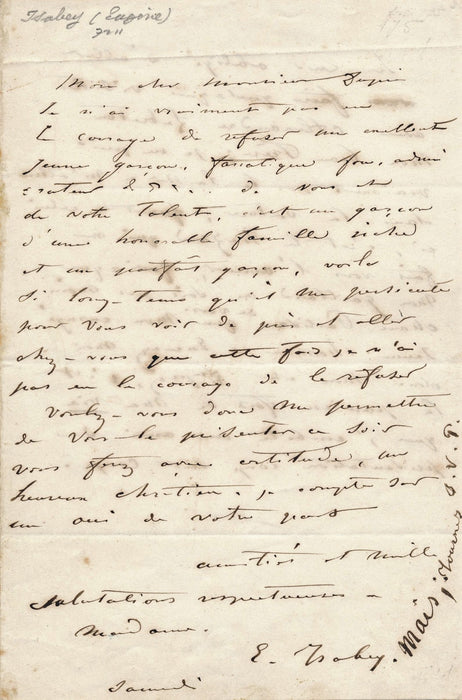 Isabey (Eugène)
Mon cher Monsieur Dupin
Je n'ai vraiment pas eu
le courage de refuser un excellent
jeune garçon, fanatique fou, admi
rateur &. de vous et
de votre talent, c'est un garçon
d'une honorable famille riche
et un parfait garçon, voila
si long-tems qu'il me persécute
pour vous voir de près et aller
chez-vous que cette fois je n'ai
pas eu le courage de le refuser
Voulez-vous donc me permettre
de vous le présenter ce soir
vous ferez avec certitude, un
heureux chrétien. je compte sur
un oui de votre part
amitiés et mille
salutations respectueuses a
Madame.
E. Isabey.
Samedi
Mais, tournez s. v. p.